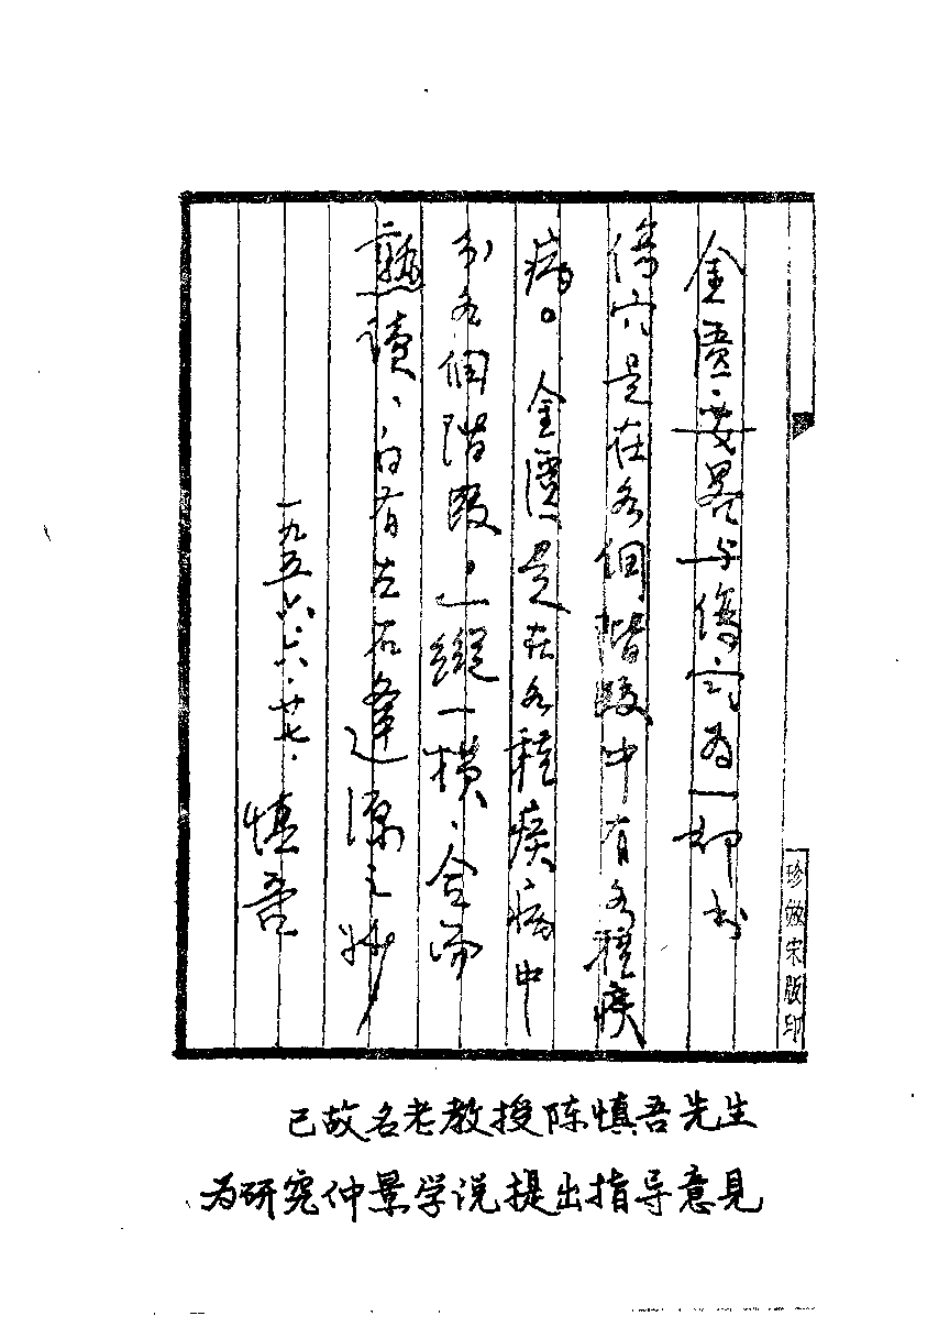 金匮要略与傷寒为一部书
傷寒是在各個階段中有各種疾
病。金匮是在各種疾病中
分各個階段，一縱一横，合而
熟讀，自有左右逢源之妙
一九五六.六.廿七.
慎吾
珍倣宋版印
已故名老教授陈慎吾先生
为研究仲景学说提出指导意见